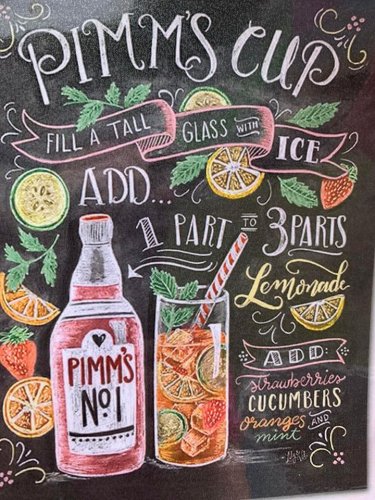 PIMM'S CUP
FILL A TALL GLASS WITH ICE
ADD...
1 PART TO 3 PARTS
Lemonade
PIMM'S
No 1
ADD:
strawberries
CUCUMBERS
oranges AND
mint